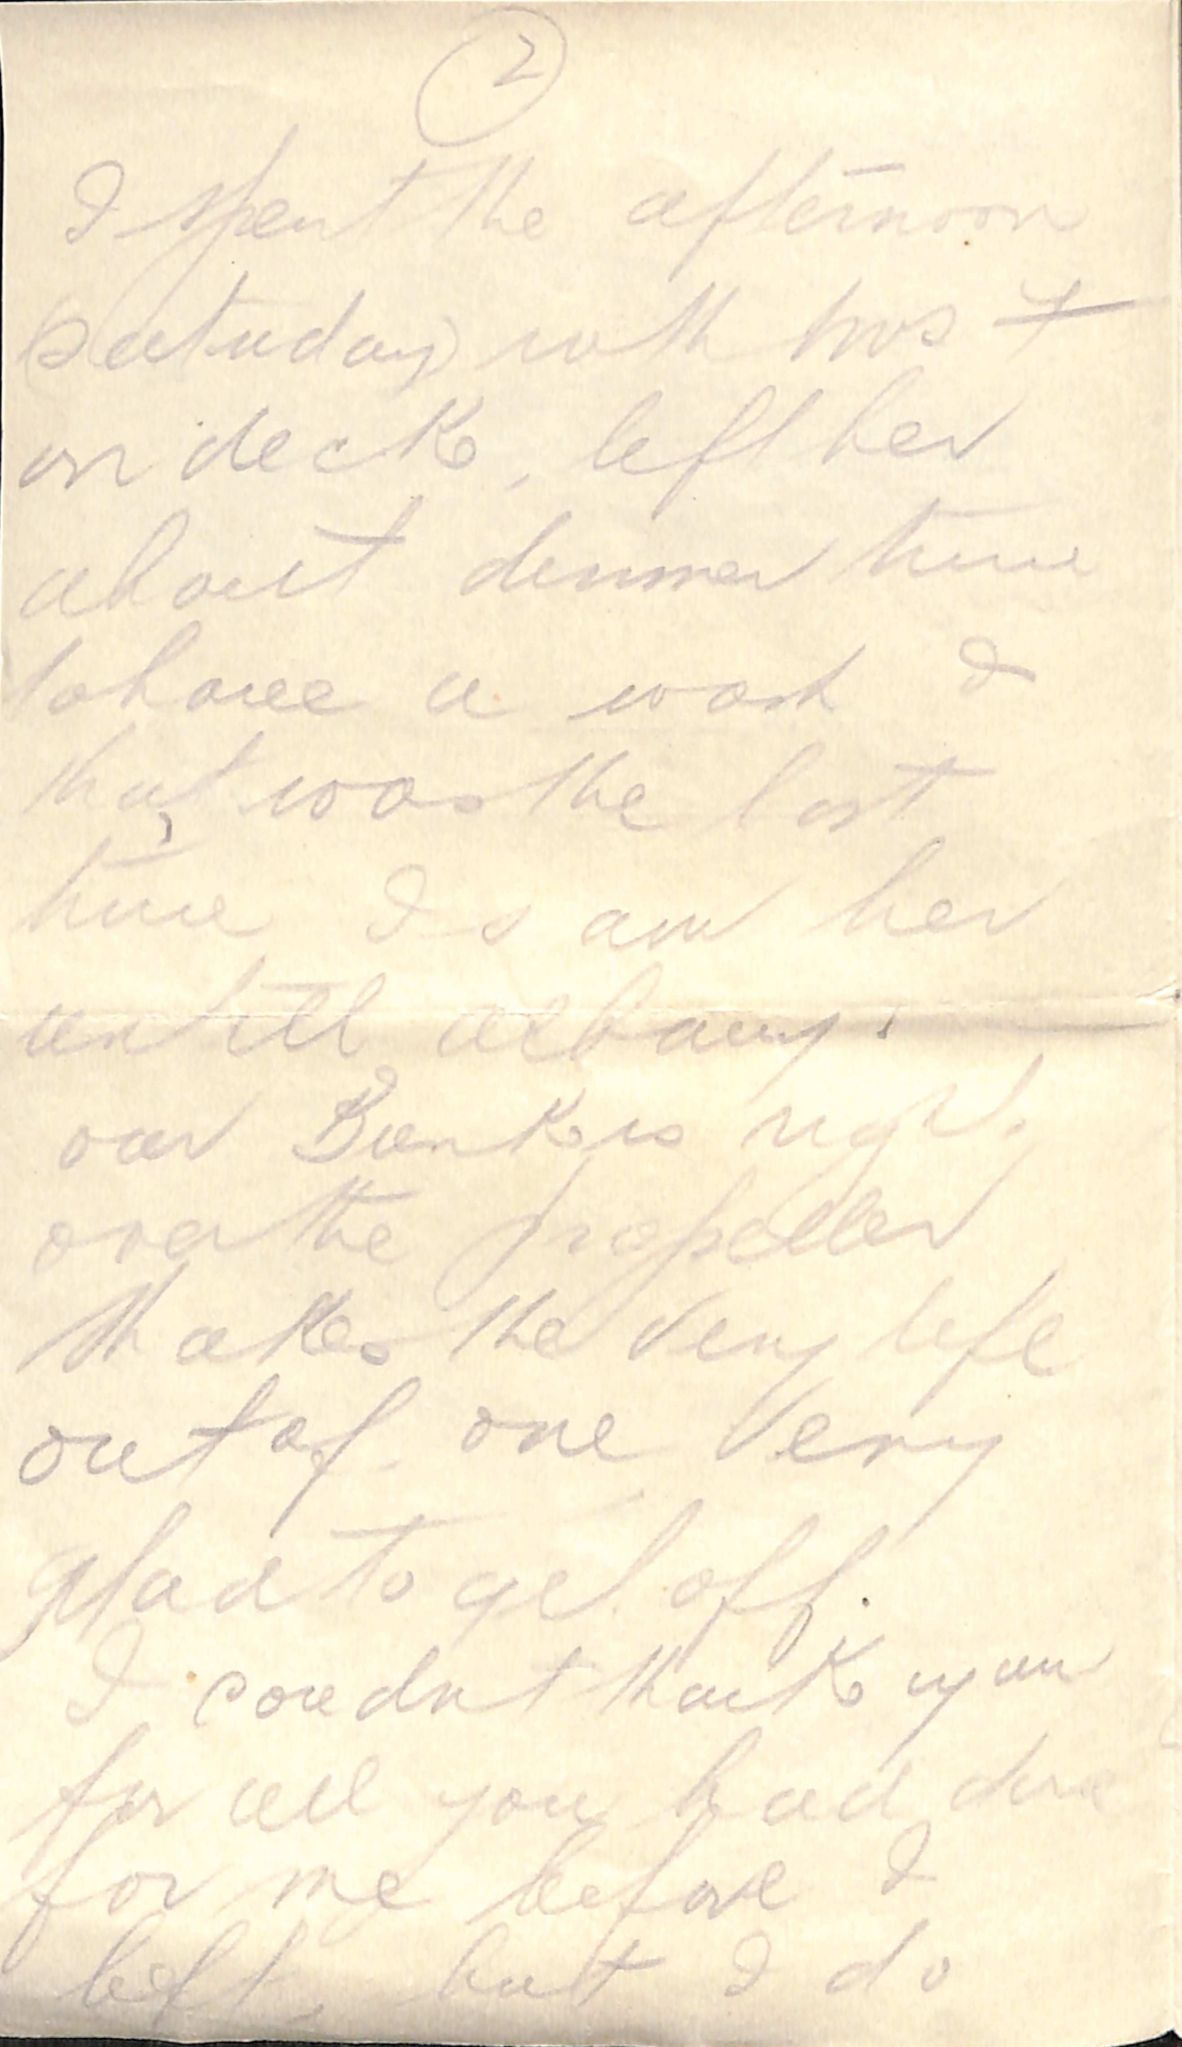 2
I spent the afternoon
(Saturday) with Mrs F
on deck, left her
about dinner time
to have a wash &
that was the last
time I saw her
untill albany.
our Bunk is right
over the propeller
shakes the very life
out of one very
glad to get off.
I couldnt thank you
for all you had done
for me before I
left, but I do